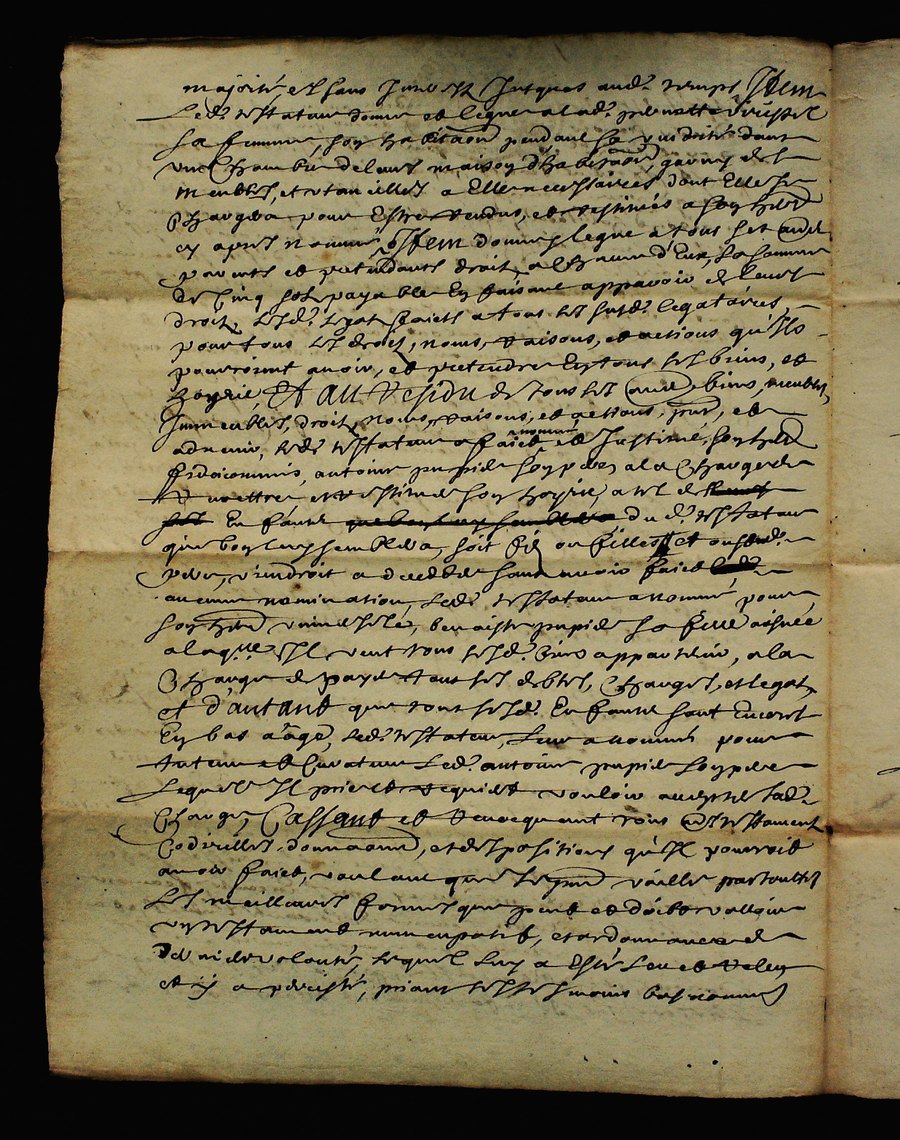 majorité et sans interetz jusques aud. temps Item
Led. testateur donne et legue a lad.
sa femme, son habitaon pendant sa viduité dans
une chambre de leur maison d'habitaon, garnie des
meubles, et utancilles a Elle necessaires dont Elle se
chargera pour Estre rendus, et restitués a son hered
cy apres nommé, Item donne legue a tous ses autres
parents et pretendants droit, a chacun d'Eux, la somme
de Cinq sols payable En faisant apparoir de leurs
droit, lesd. legat faicts a tous les susd. legataires,
pour tous les droit, noms, raisons, et actions qu'ils
pourroint avoir, et pretendre En tous ses biens, et
hoyrie Et au residu de tous ses autres biens, meubles,
Immeubles, droit, noms, raisons, et actions, pnt, et
advenir, led. testateur a faict nommé et Institué, son hered
fideicommis, antoine pupide son pere, a la Charge de
remettre et restituer son hoyrie, a tel de
Enfant du d. testateur
que bon luy semblera, soit fis ou filles et ou sond.
pere, viendroit a deceder sans avoir faict
aucune nomination, led. testateur a nommé pour
son hered universelle, pupide sa fille aisnée
a laqlle Il veut tous sesd. biens appartenir, a la
Charge de payer tous ses debtes, Charges, et legat,
et d'autant que tout sesd. Enfants sont Encores
En bas aage, led. testateur, leur a nommé pour
tuteur et Curateur led. antoine pupide son pere
lequel Il prie et requiert vouloir accepter lad.
Charge, Cassant et revocquant tous autres testament
Codicilles, donnaons, et dispositions qu'Il pourroit
avoir faict, voulant que le pnt vaille par toutes
les meilleures formes que peut et doibt valloir
un testament nuncupatif, et ordonnance de
derniere volonté, lequel luy a Esté leu et releu
et y a percisté, priant les tesmoins bas nommes